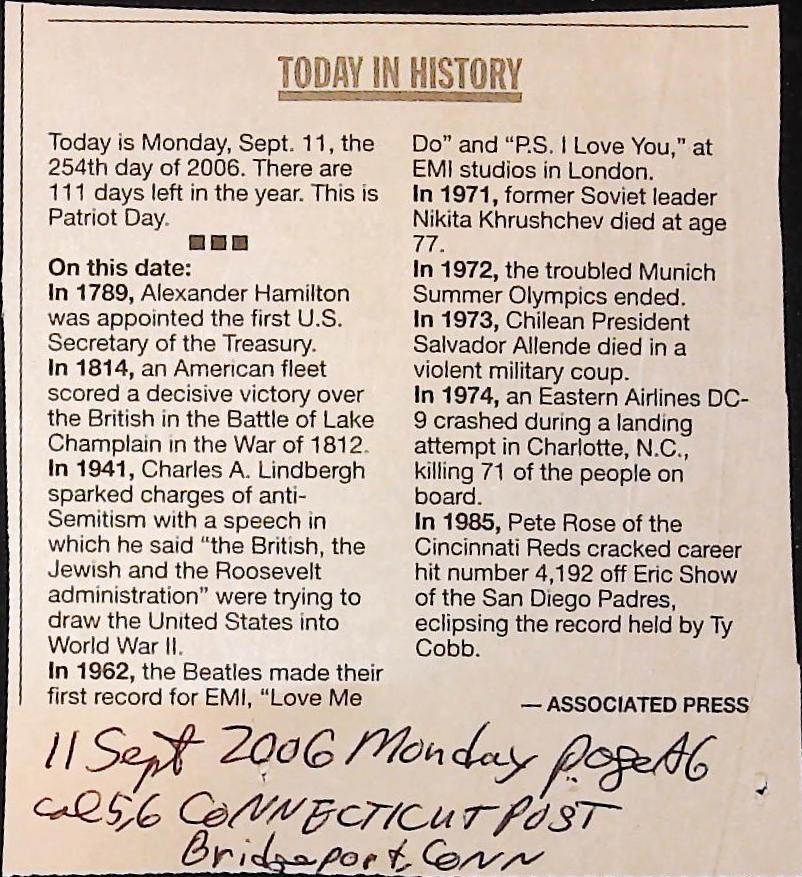 TODAY IN HISTORY
Today is Monday, Sept. 11, the
254th day of 2006. There are
111 days left in the year. This is
Patriot Day.
On this date:
In 1789, Alexander Hamilton
was appointed the first U.S.
Secretary of the Treasury.
In 1814, an American fleet
scored a decisive victory over
the British in the Battle of Lake
Champlain in the War of 1812.
In 1941, Charles A. Lindbergh
sparked charges of anti-
Semitism with a speech in
which he said “the British, the
Jewish and the Roosevelt
administration” were trying to
draw the United States into
World War II.
In 1962, the Beatles made their
first record for EMI, “Love Me
Do” and “P.S. I Love You,” at
EMI studios in London.
In 1971, former Soviet leader
Nikita Khrushchev died at age
77.
In 1972, the troubled Munich
Summer Olympics ended.
In 1973, Chilean President
Salvador Allende died in a
violent military coup.
In 1974, an Eastern Airlines DC-
9 crashed during a landing
attempt in Charlotte, N.C.,
killing 71 of the people on
board.
In 1985, Pete Rose of the
Cincinnati Reds cracked career
hit number 4,192 off Eric Show
of the San Diego Padres,
eclipsing the record held by Ty
Cobb.
— ASSOCIATED PRESS
11 Sept 2006 Monday page A6
col 5,6 CONNECTICUT POST
Bridgeport, CONN